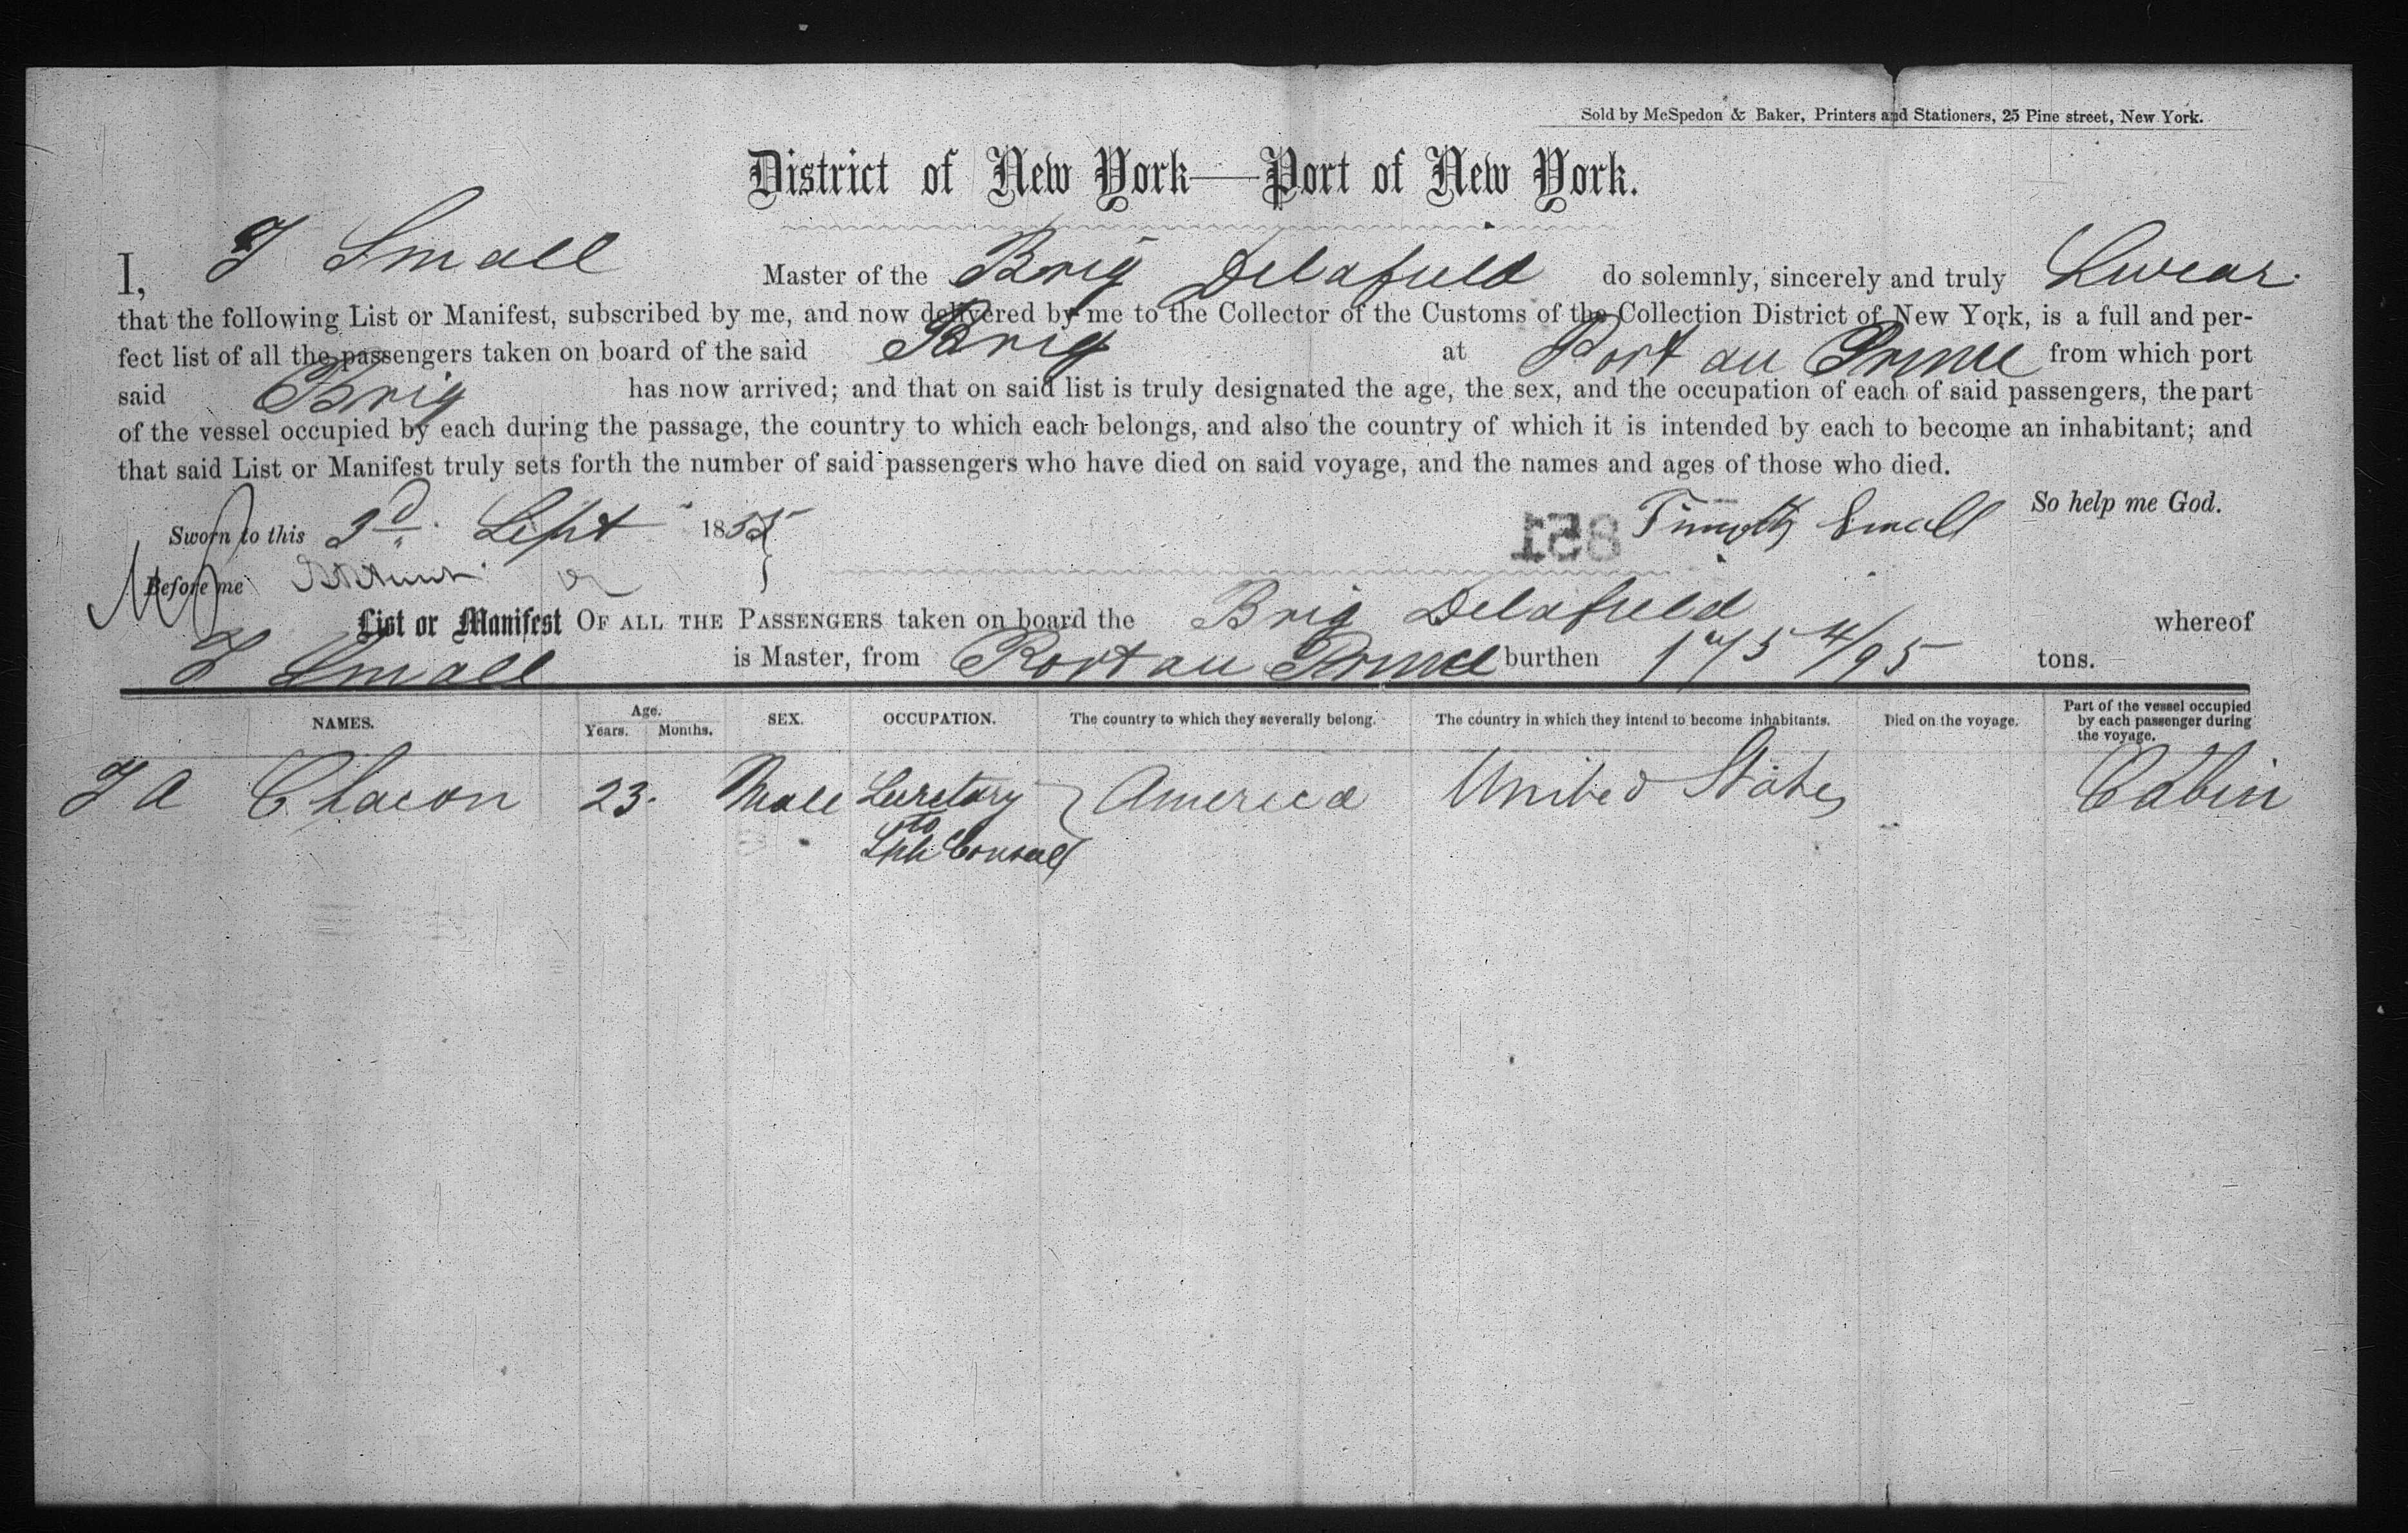 Sold by McSpedon & Baker, Printers and Stationers, 25 Pine street, New York.
District of New York—Port of New York.
I, T Small Master of the Brig Delafield do solemnly, sincerely and truly Swear
that the following List or Manifest, subscribed by me, and now delivered by me to the Collector of the Customs of the Collection District of New York, is a full and per-
fect list of all the passengers taken on board of the said Brig at Port au Prince from which port
said Brig has now arrived; and that on said list is truly designated the age, the sex, and the occupation of each of said passengers, the part
of the vessel occupied by each during the passage, the country to which each belongs, and also the country of which it is intended by each to become an inhabitant; and
that said List or Manifest truly sets forth the number of said passengers who have died on said voyage, and the names and ages of those who died.
So help me God.
Sworn to this 3d. Sept 1855 851 Timothy Small
Before me
List or Manifest OF ALL THE PASSENGERS taken on board the Brig Delafield whereof
T Small is Master, from Port au Prince burthen 175 4/95 tons.
NAMES. Age. Years. Months. SEX. OCCUPATION. The country to which they severally belong. The country in which they intend to become inhabitants. Died on the voyage. Part of the vessel occupied by each passenger during the voyage.
Chacon 23. Male Secretary America United States Cabin
to
Consul